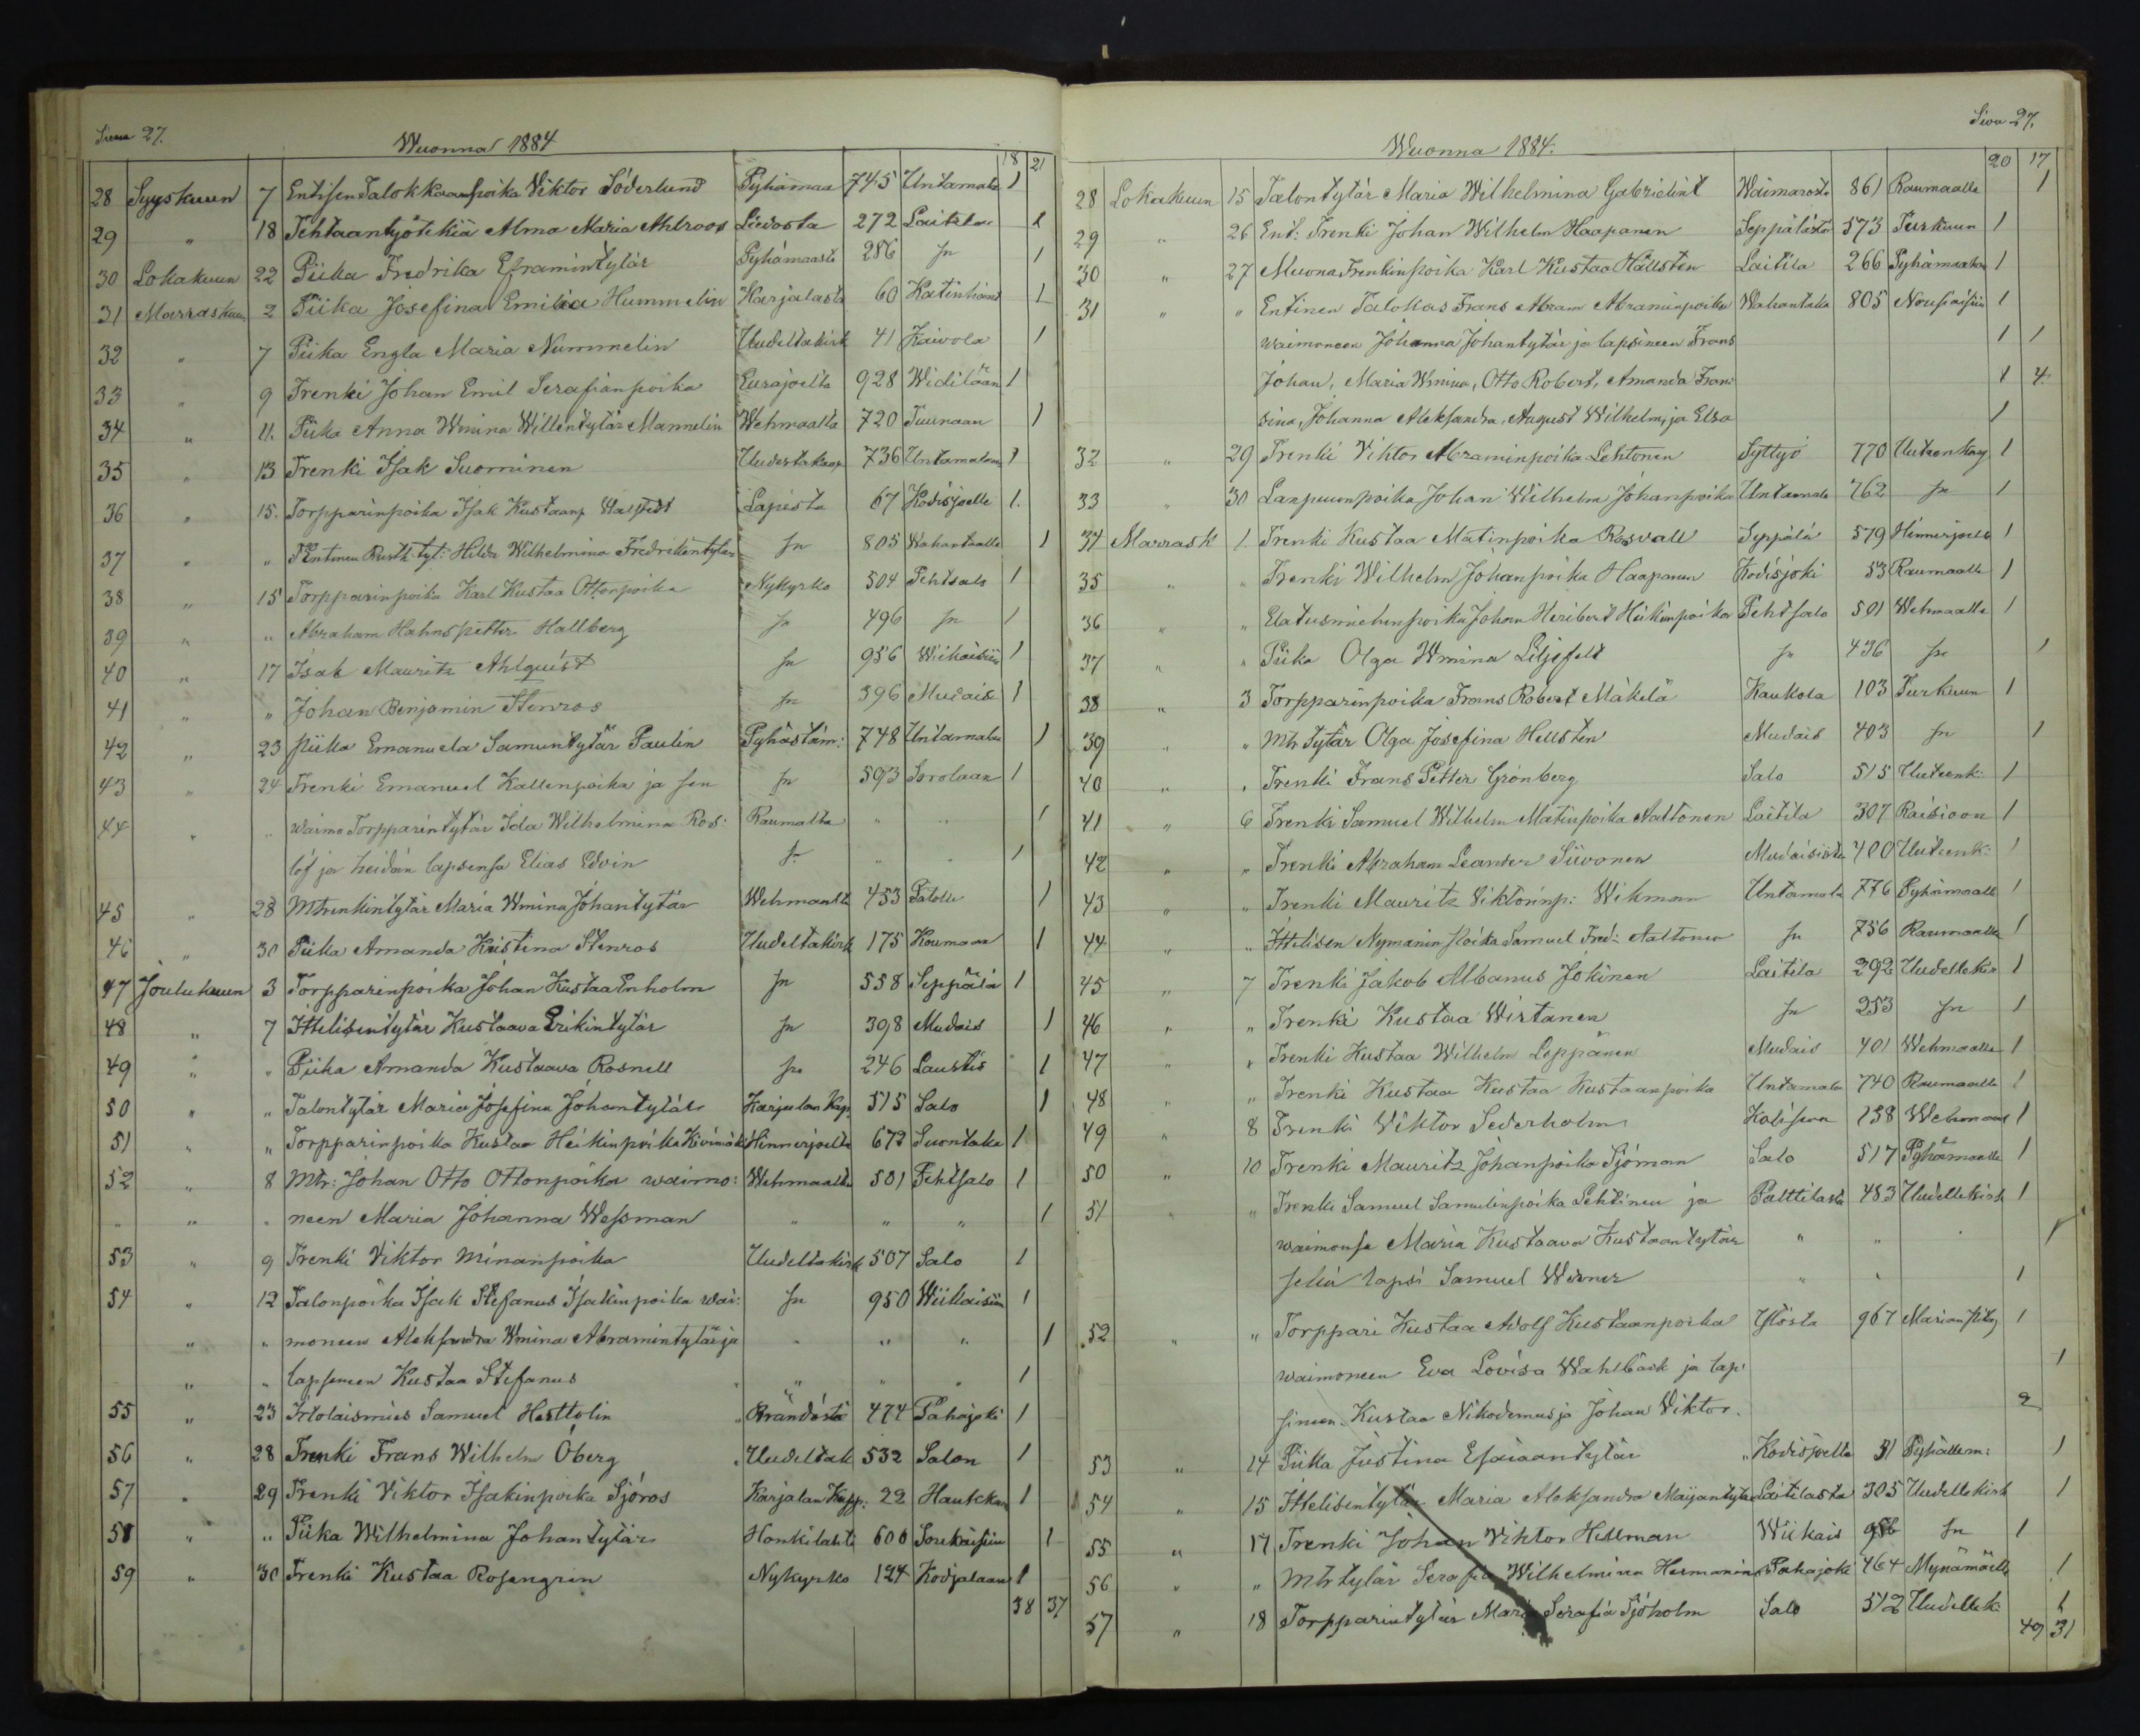 Sivu 27.
Wuonna 1884
18 21
28 Syyskuun 7 Entisen Talokkaanpoika Viktor Söderlund Pyhämaa 745 Untamala 1
29 " 18 Tehtaantyötekiä Alma Maria Ahlroos Liedosta 272 Laitila 1
30 Lokakuun 22 Piika Fredrika Eframintytär Pyhämaasta 286 sn 1
31 Marraskuun 2 Piika Josefina Emilia Hummelin Karjalasta 60 Katinhänd 1
32 " 7 Piika Engla Maria Nummelin Uudeltakirk 41 Kaivola 1
33 " 9 Trenki Johan Emil Serafianpoika Eurajoelta 928 Widilään 1
34 " 11. Piika Anna Wmina Willentytär Mannelin Wehmaalta 720 Tuunaan 1
35 " 13 Trenki Isak Suominen Uudestakaup 736 Untamalaan 1
36 " 15. Torpparinpoika Isak Kustaanp Lapista 67 Kodisjoelle 1.
37 " " Entinen Rusth. tyt: Hilda Wilhelmina Fredrikintytär sn 805 Wahantaalle 1
38 " 15 Torpparinpoika Karl Kustaa Ottonpoika Nykyrko 504 Pehtsalo 1
39 " " Abraham Hahnspetter Hallberg sn 496 sn 1
40 " 17 Isak Mauritz Ahlqvist sn 956 Wiikaisiin 1
41 " " Johan Benjamin Stenros sn 396 Mudais 1
42 " 23 Piika Emanuela Samuntytär Paulin Pyhästäm: 748 Untamala 1
43 " 24 Trenki Emanuel Kallenpoika ja sen sn 593 Sorolaan 1
44 " " waimo Torpparintytär Ida Wilhelmina Ros: Raumalta " " 1
löf ja heidän lapsensa Elias Edvin sn " " 1
45 " 28 Mtrenkintytär Maria Wmina Johantytär Wehmaalta 453 Pätolle 1
46 " 30 Piika Amanda Kristina Stenros Uudeltakirk 175 Koumaan 1
47 Joulukuun 3 Torpparinpoika Johan Kustaa Enholm sn 558 Seppälä 1
48 " 7 Ittelisentytär Kustaava Erikintytär sn 398 Mudais 1
49 " " Piika Amanda Kustaava Rosnell sn 246 Laustis 1
50 " " Talontytär Maria Josefina Johantytär Karjalan Kap. 515 Salo 1
51 " " Torpparinpoika Kustaa Heikinpoika Kivimäki Hinnerjoelta 672 Suontaka 1
52 " 8 Mtr: Johan Otto Ottonpoika waimo: Wehmaalta 501 Pehtsalo 1
" " " neen Maria Johanna Wessman " " " 1
53 " 9 Trenki Viktor Minanpoika Uudeltakirk 507 Salo 1
54 " 12 Talonpoika Isak Stefanus Isakinpoika wai: sn 950 Wiikaisiin 1
" " moneen Aleksandra Wmina Abramintytär ja " " " 1
" " lapseneen Kustaa Stefanus " " " 1
55 " 23 Irtolaismies Samuel Hesttolin Brändöstä 474 Pahojoki 1
56 " 28 Trenki Frans Wilhelm Öberg Uudeltak 532 Salon 1
57 " 29 Trenki Viktor Isakinpoika Sjöros Karjalan Kapp: 22 Hautckan 1
58 " " Piika Wilhelmina Johantytär Honkilahti 600 Soukaisiin 1
59 " 30 Trenki Kustaa Rosengren Nykyrko 124 Kodjalaan 1
38 37
Sivu 27.
Wuonna 1884.
20 17
28 Lokakuun 15 Talontytär Maria Wilhelmina Gabrielint Waimarosta 861 Raumaalle 1
29 " 26 Ent: Trenki Johan Wilhelm Haapanen Seppälästä 573 Turkuun 1
30 " 27 Muona Trenkinpoika Karl Kustaa Hällsten Laitila 266 Pyhämaahan 1
31 " " Entinen Talokas Frans Abram Abraminpoika Wahantaka 805 Nousiaisiin 1
waimoneen Johanna Johantytär ja lapsineen Frans 1 1
Johan, Maria Wmina, Otto Robert, Amanda Fran: 1 4
sina, Johanna Aleksandra, August Wilhelm, ja Elsa 1
32 " 29 Trenki Viktor Abraminpoika Lehtonen Syttyö 770 Uuteenkau 1
33 " 30 Lampuonpoika Johan Wilhelm Johanpoika Untamala 762 sn 1
34 Marrask 1. Trenki Kustaa Matinpoika Rosvall Seppälä 579 Hinnerjoelle 1
35 " " Trenki Wilhelm Johanpoika Haapanen Kodisjoki 53 Raumaalle 1
36 " " Elatusmiehenpoika Johan Heribert Heikinpoika Pehtsalo 501 Wehmaalle 1
37 " " Piika Olga Wmina Liljefelt sn 436 sn 1
38 " 3 Torpparinpoika Frans Robert Mäkelä Kaukola 103 Turkuun 1
39 " " Mtr tytär Olga Josefina Hellsten Mudais 403 sn 1
40 " " Trenki Frans Petter Grönberg Salo 515 Uuteenk: 1
41 " 6 Trenki Samuel Wilhelm Matinpoika Aaltonen Laitila 307 Raisioon 1
42 " " Trenki Abraham Leander Siivonen Mudaisista 400 Uuteenk: 1
43 " " Trenki Mauritz Viktorinp: Wikman Untamala 776 Pyhämaalle 1
44 " " Ittelisen Nymanin poika Samuel Fred: Aaltonen sn 756 Raumaalle 1
45 " 7 Trenki Jakob Albanus Jokinen Laitila 292 Uudellekir 1
46 " " Trenki Kustaa Wirtanen sn 253 sn 1
47 " " Trenki Kustaa Wilhelm Leppänen Mudais 401 Wehmaalle 1
48 " " Trenki Kustaa Kustaa Kustaanpoika Untamala 740 Raumaalle 1
49 " 8 Trenki Wiktor Sederholm Kalisvan 138 Wehmaal 1
50 " 10 Trenki Mauritz Johanpoika Sjöman Salo 517 Pyhämaalle 1
51 " " Trenki Samuel Samulinpoika Lehtinen ja Palttilasta 483 Uudellekirk 1
waimonsa Maria Kustaava Kustaantytär " " " 1
sekä lapsi Samuel Werner " " 1
52 " " Torppari Kustaa Adolf Kustaanpoika Ylöstä 967 Marian pitäj 1
waimoneen Eva Lovisa Wahlbäck ja lap: 1
sineen Kustaa Nikodemus ja Johan Viktor. 2
53 " 14 Piika Justina Esaiaantytär Kodisjoelta 31 Pyhällem: 1
54 " 15 Ittelisentytär Maria Aleksandra Maijantytär Laitilasta 305 Uudellekirk 1
55 " 17 Trenki Johan Viktor Hellman Wiikais 956 sn 1
56 " " Mtr tytär Serafia Wilhelmina Hermanin Pahajoki 464 Mynämäelle 1
57 " 18 Torpparintytär Maria Serafia Sjöholm Salo 512 Uudellek: 1
49 31